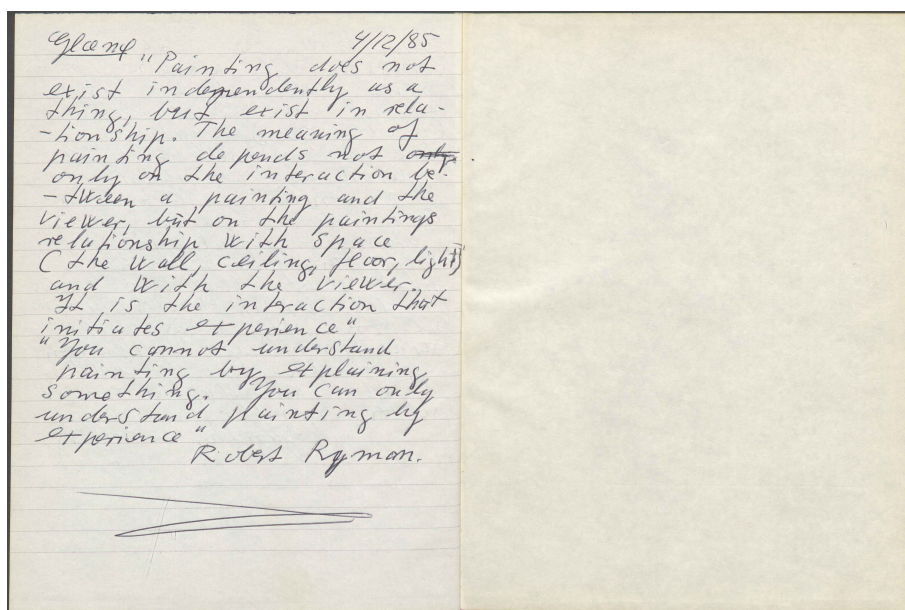 Gland 4/12/85
"Painting does not
exist independently as a
thing, but exist in rela-
-tionship. The meaning of
painting depends not only
only on the interaction be-
-tween a painting and the
viewer, but on the paintings
relationship with space
(the wall, ceiling, floor, light)
and with the viewer.
It is the interaction that
initiates experience"
"You cannot understand
painting by explaining
something. You can only
understand painting by
experience"
Robert Ryman.